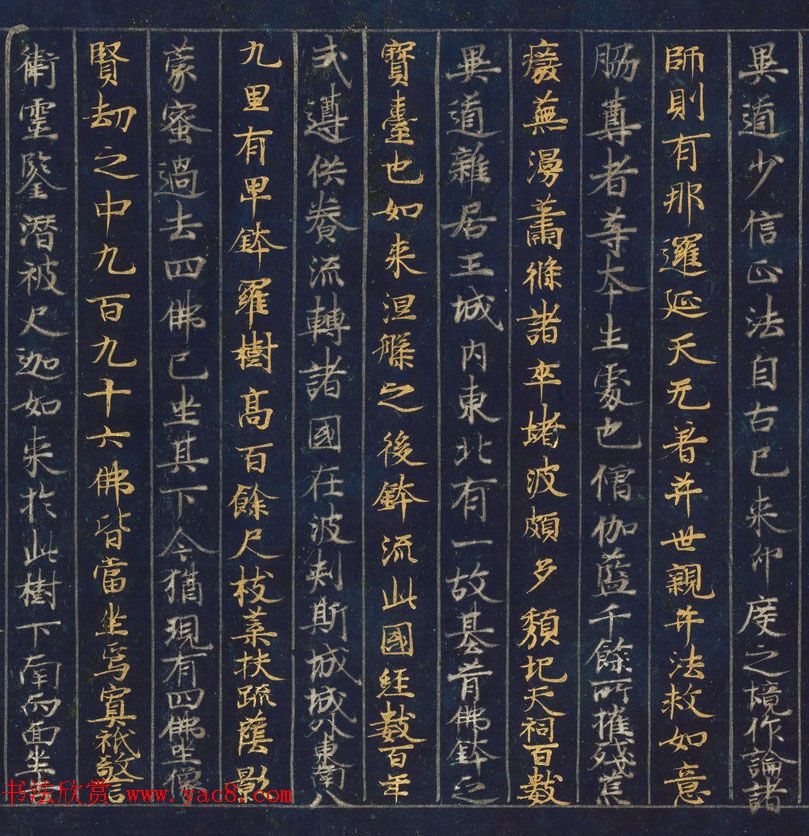 異道少信正法自古已来印度之境作論諸
師則有那邏延天无著𦬇世親𦬇法救如意
脇尊者等本生處也僧伽藍千餘所摧殘荒
癈蕪漫蕭條諸卒堵波頗多頹圮天祠百數
異道雜居王城内東北有一故基昔佛鉢之
寶臺也如来涅槃之後鉢流此國經數百年
式遵供養流轉諸國在波刾斯城城外東南八
九里有卑鉢羅樹高百餘尺枝葉扶疏蔭影
蒙蜜過去四佛已坐其下今猶現有四佛坐像
賢劫之中九百九十六佛皆當坐焉冥祇警
衛靈鑒潛被尺迦如来於此樹下南而面坐
书法欣赏 www.yac8.com